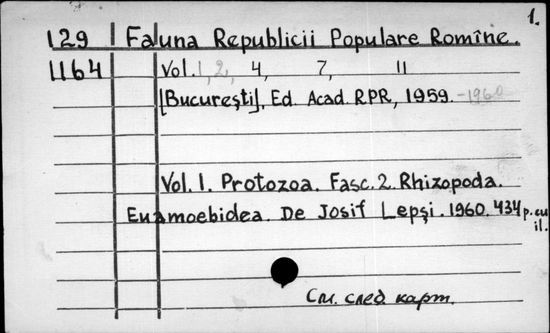 1.
129 Fauna Republicii Populare Romîne.
1164 Vol. 1, 2, 4, 7, 11
[București], Ed. Acad. RPR, 1959.-1960
Vol. 1. Protozoa. Fasc. 2. Rhizopoda.
Euamoebidea. De Josif Lepși. 1960. 434 p. cu
il.
См. след. карт.